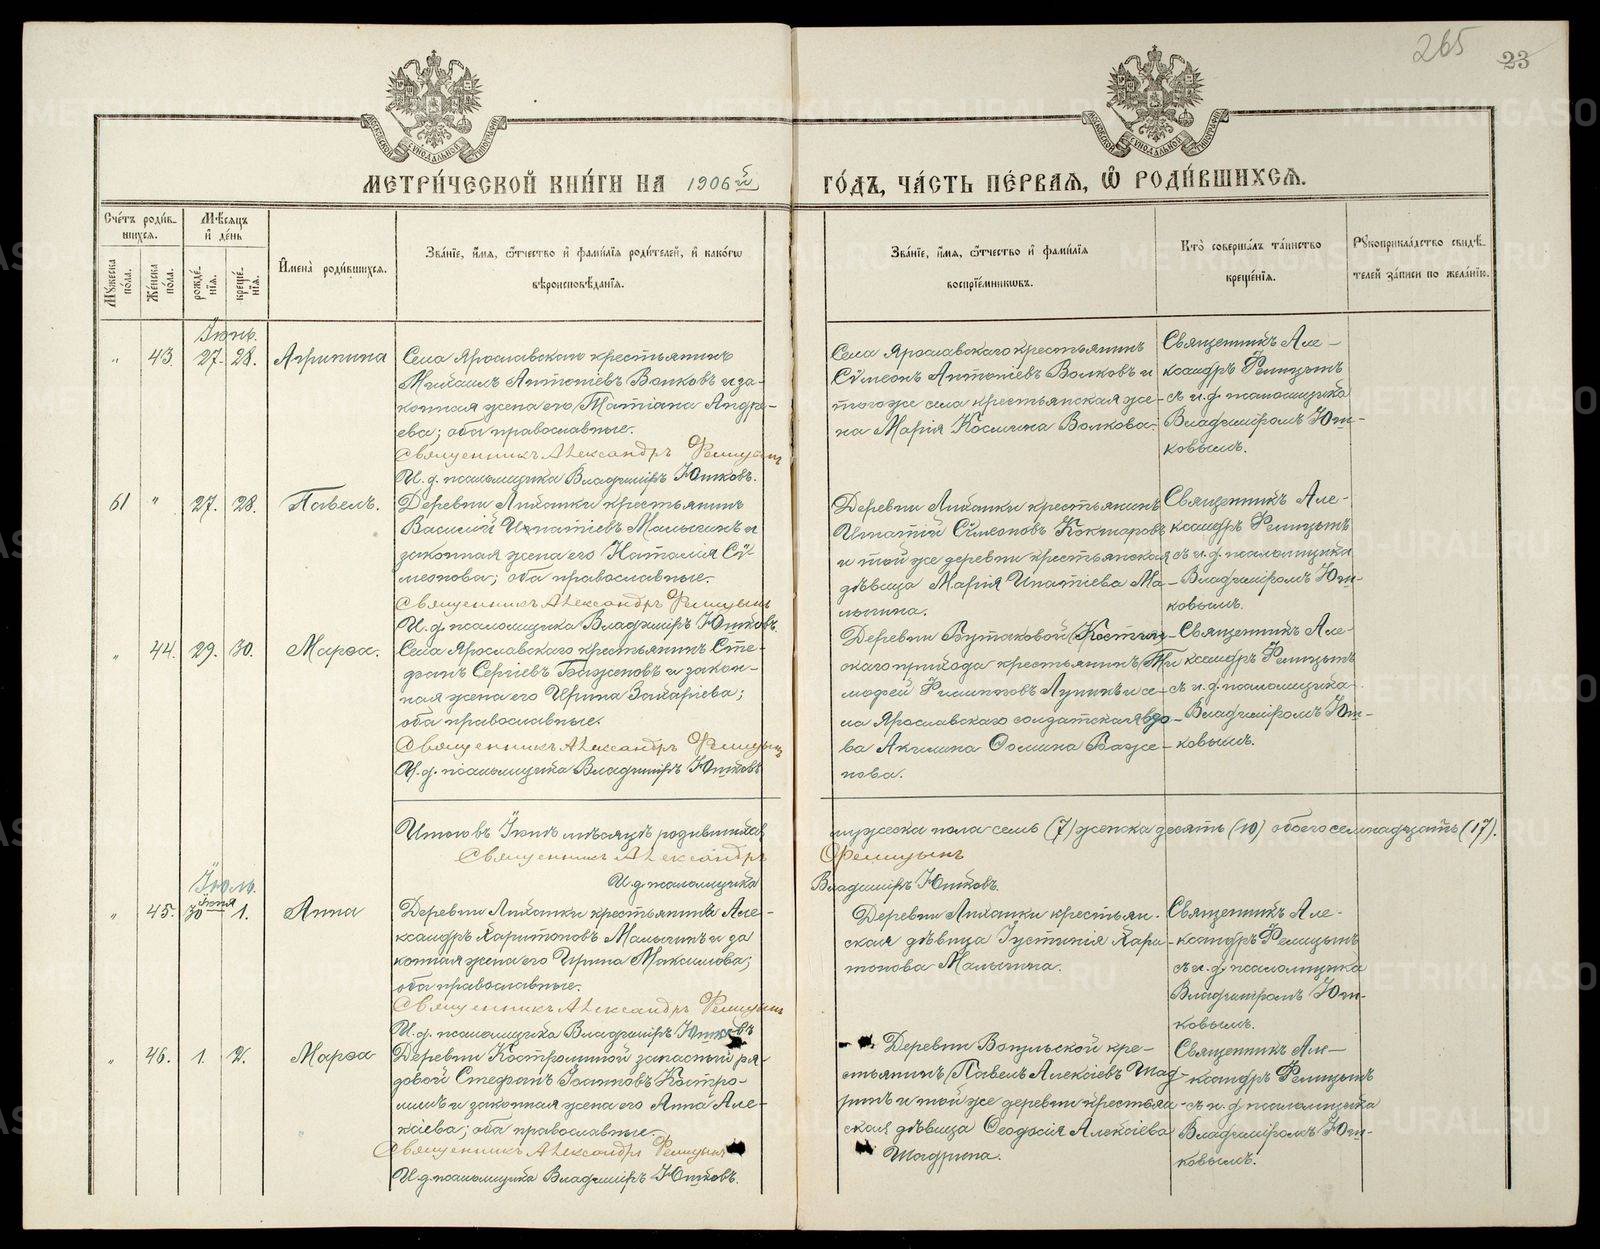 265 23
МЕТРИ́ЧЕСКОЙ КНИ́ГИ НА 1906й ГО́ДЪ, ЧА́СТЬ ПЕ́РВАЯ, Ѿ РОДИ́ВШИХСЯ.
Сче́тъ роди́в-
шихся.
Му́жеска по́ла.
Же́нска по́ла.
Мѣ́сяцъ
и҆ де́нь
рожде́-
нїя.
креще́-
нїя.
И҆мена̀ роди́вшихся.
Зва́нїе, и҆́мя, ѻ҆́тчество и҆ фами́лїя роди́телей, и҆ како́гѡ
вѣроисповѣ́данїя.
Зва́нїе, и҆́мя, ѻ҆́тчество и҆ фами́лїя
воспрїе́мникѡвъ.
Кто̀ соверша́лъ та́инство
креще́нїя.
Рукоприкла́дство свидѣ́-
телей за́писи по жела́нїю.
Іюнь.
" 43. 27. 28. Агрипина
Села Ярославскаго крестьянинъ
Михаилъ Антоніевъ Волковъ и за-
конная жена его Татіана Андре-
ева; оба православные.
Священникъ Александръ Фелицынъ
И. д. псаломщика Владиміръ Ютковъ.
Села Ярославскаго крестьянинъ
Сѵмеонъ Антоніевъ Волковъ и
того же села крестьянская же-
на Марія Космина Волкова.
Священникъ Але-
ксандръ Фелицынъ
съ и. д. псаломщика
Владиміромъ Ют-
ковымъ.
61 " 27. 28. Павелъ.
Деревни Лиханки крестьянинъ
Василій Игнатіевъ Малыгинъ и
законная жена его Наталія Сѵ-
меонова; оба православные.
Священникъ Александръ Фелицынъ
И. д. псаломщика Владиміръ Ютковъ.
Деревни Лиханки крестьянинъ
Игнатій Сѵмеоновъ
и той же деревни крестьянская
дѣвица Марія Ипатіева Ма-
лыгина.
Священникъ Але-
ксандръ Фелицынъ
съ и. д. псаломщика
Владиміромъ Ют-
ковымъ.
" 44. 29. 30. Марѳа.
Села Ярославскаго крестьянинъ Сте-
фанъ Сергіевъ Баженовъ и закон-
ная жена его Ирина Захаріева;
оба православные.
Священникъ Александръ Фелицынъ
И. д. псаломщика Владиміръ Ютковъ
Деревни Бутаковой
скаго прихода крестьянинъ Ти
моѳей Филипповъ Лупинъ и се-
ла Ярославскаго солдатская вдо-
ва Акилина Ѳомина Баже-
нова.
Священникъ Але-
ксандръ Фелицынъ
съ и. д. псаломщика
Владиміромъ Ют-
ковымъ.
Итого въ Іюнѣ мѣсяцѣ родившихся мужеска пола семь (7) женска десять (10) обоего семнадцать (17).
Священникъ Александръ Фелицынъ
И. д. псаломщика Владиміръ Ютковъ.
Іюль.
" 45. 30 іюня 1. Анна
Деревни Лиханки крестьянинъ Але-
ксандръ Харитоновъ Малыгинъ и за
конная жена его Ирина Максимова;
оба православные.
Священникъ Александръ Фелицынъ
И. д. псаломщика Владиміръ Ютковъ
Деревни Лиханки крестьян-
ская дѣвица Іустинія Хари-
тонова Малыгина.
Священникъ Але-
ксандръ Фелицынъ
съ и. д. псаломщика
Владиміромъ Ют-
ковымъ.
" 46. 1. 2. Марѳа
Деревни Костроминой запасный ря-
довой Стефанъ Іоанновъ Костро-
минъ и законная жена его Анна Але-
ксіева; оба православные.
Священникъ Александръ Фелицынъ
И. д. псаломщика Владиміръ Ютковъ.
Деревни Вогульской кре-
стьянинъ Павелъ Алексіевъ Шад-
ринъ и той же деревни крестьян-
ская дѣвица Ѳеодосія Алексіева
Шадрина.
Священникъ Але-
ксандръ Фелицынъ
съ и. д. псаломщика
Владиміромъ Ют-
ковымъ.